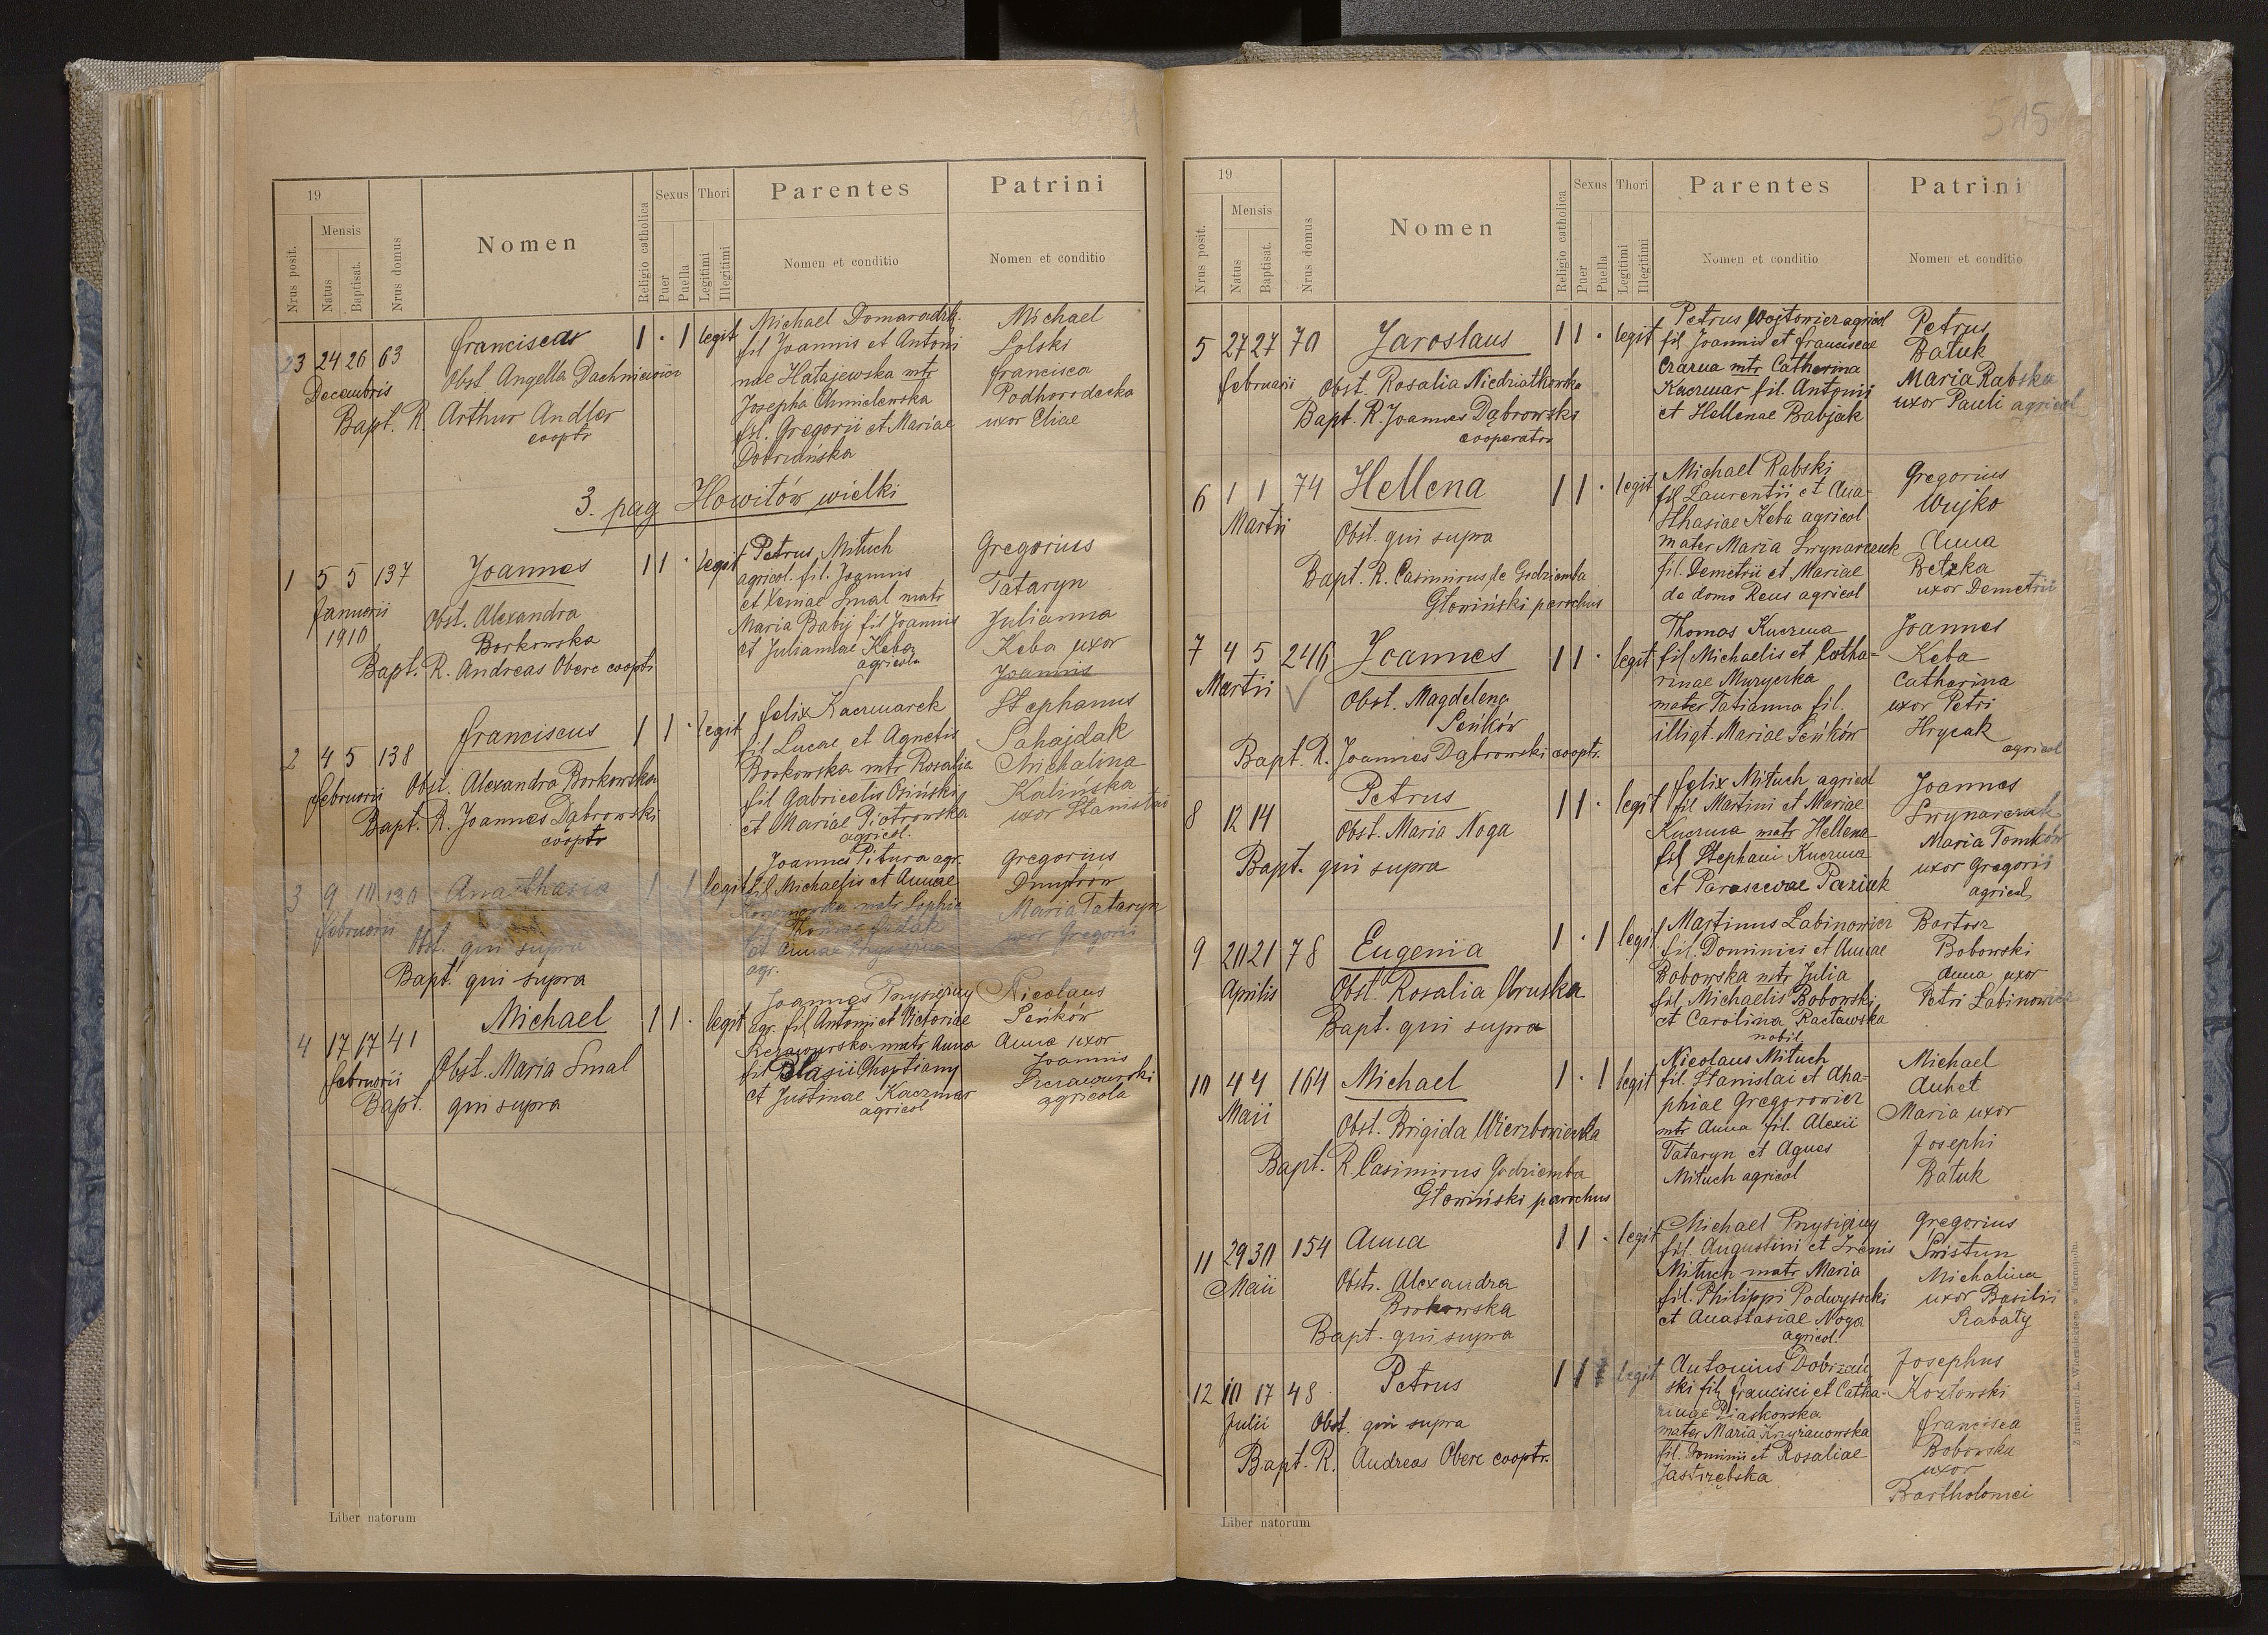 514
19
Nrus posit.
Mensis
Natus
Baptisat.
Nrus domus
Nomen
Religio catholica
Sexus
Puer
Puella
Thori
Legitimi
Illegitimi
Parentes
Nomen et conditio
Patrini
Nomen et conditio
23 24 26 63
Decembris
Obst. Angella
Bapt. R. Arthur Andler
cooptr
1 · 1 legit
Michael
fil Joannis et Antoni
nae Hatajewska mtr
Josepha Chmielewska
fil. Gregorii et Mariae
Dobrianska
Michael
Solski
Francisca
Podhorodecka
uxor Eliae
3. pag Howitów wielki
1 5 5 137 Joannes 1 1 · legit
Januarii
1910
Obst. Alexandra
Borkowska
Bapt. R. Andreas Oberc cooptr
Petrus Mituch
agricol. fil. Joannis
et Xeniae Smal matr
Maria Babij fil Joannis
et Juliannae Keba
agricola
Gregorius
Tataryn
Julianna
Keba uxor
Joannis
2 4 5 138 Franciscus 1 1 · legit
Februarii
Obst. Alexandra Borkowska
Bapt. R. Joannes Dąbrowski
cooptr
Felix Kaczmarek
fil Lucae et Agnetis
Borkowska mtr Rosalia
fil Gabrielis Osiński
et Mariae Piotrowska
agricol.
Stephanus
Sahajdak
Michalina
Kalinska
uxor Stanislai
3 9 10 130 Anasthasia 1 · 1 legit
Februarii
Obst. qui supra
Bapt. qui supra
Joannes Pitura agr.
fil Michaelis et Annae
matr Sophia
Thomae
et Annae
agr.
Gregorius
Dmytrow
Maria Tataryn
uxor Gregorii
4 17 17 41 Michael 1 1 · legit
Februarii
Obst. Maria Smal
Bapt. qui supra
Joannes
agr. fil Antonii et Victoriae
matr Anna
fil Blasii Choptiany
et Justinae Kaczmar
agricol
Nicolaus
Seńków
Anna uxor
Joannis
agricola
Liber natorum
515
19
Nrus posit.
Mensis
Natus
Baptisat.
Nrus domus
Nomen
Religio catholica
Sexus
Puer
Puella
Thori
Legitimi
Illegitimi
Parentes
Nomen et conditio
Patrini
Nomen et conditio
5 27 27 70 Jaroslaus 1 1 · legit
Februarii
Obst. Rosalia Niedziałkowska
Bapt. R. Joannes Dąbrowski
cooperatr
Petrus Wojtowicz agricol
fil Joannis et Franciscae
mtr Catherina
Kaczmar fil. Antonii
et Hellenae Babjak
Petrus
Batuk
Maria Rabska
uxor Pauli agricol
6 1 1 74 Hellena 1 1 · legit
Martii
Obst. qui supra
Bapt. R. Casimirus de Godziemba
Głowiński parochus
Michael Rabski
fil Laurentii et Ana-
sthasiae Keba agricol
mater Maria Swynarczuk
fil. Demetrii et Mariae
de domo Reus agricol
Gregorius
Wujko
Anna
Betzka
uxor Demetrii
7 4 5 246 Joannes 1 1 · legit
Martii
Obst. Magdelena
Seńków
Bapt. R. Joannes Dąbrowski cooptr.
Thomas Kuczma
fil Michaelis et Catha-
rinae Muryczka
mater Tatianna fil.
illigt. Mariae Seńków
Joannes
Keba
Catherina
uxor Petri
Hrycak
agricol
8 12 14 Petrus 1 1 · legit
Obst. Maria Noga
Bapt. qui supra
Felix Mituch agricol
fil Martini et Mariae
Kuczma matr Hellena
fil Stephani Kuczma
et Parascevae Paziuk
Joannes
Swynarczuk
Maria Tomków
uxor Gregorii
agricol
9 20 21 78 Eugenia 1 · 1 legit
Aprilis
Obst. Rosalia Uruska
Bapt. qui supra
Martinus Łabinowicz
fil. Dominici et Annae
Bobowska mtr Julia
fil. Michaelis Bobowski
et Carolina Racławska
nobil
Bartosz
Bobowski
Anna uxor
Petri Łabinowicz
10 4 4 164 Michael 1 · 1 legit
Maii
Obst. Brigida Wierzbowiecka
Bapt. R. Casimirus Godziemba
Głowiński parochus
Nicolaus Mituch
fil. Stanislai et Aha-
phiae Gregorowicz
mtr Anna fil. Alexii
Tataryn et Agnes
Mituch agricol
Michael
Auhet
Maria uxor
Josephi
Batuk
11 29 30 154 Anna 1 1 · legit
Maii
Obstr. Alexandra
Borkowska
Bapt. qui supra
Michael
fil. Augustini et Irenis
Mituch matr Maria
fil. Philippi Podwysocki
et Anastasiae Noga
agricol.
Gregorius
Swistun
Michalina
uxor Basilii
Rabaty
12 10 17 48 Petrus 1 1 legit
Julii
Obst. qui supra
Bapt. R. Andreas Oberc cooptr.
Antonius Dobrzań
ski fil. Francisci et Catha-
rinae Piaskowska
mater Maria Krzyzanowska
fil. et Rosaliae
Jastrzębska
Josephus
Kozłowski
Francisca
Bobowska
uxor
Bartholomei
Liber natorum
Z drukarni L. Wierzbickiego w Tarnopolu.